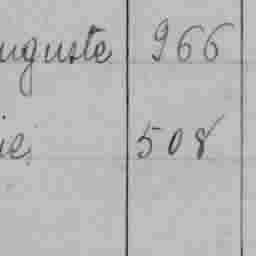 uguste 966
ie. 508